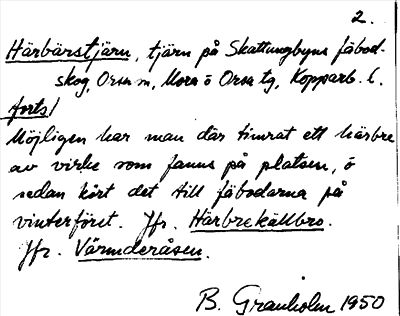 2.
Härbärstjärn, tjärn på Skattungbyns fäbod-
skog, Orsa sn, Mora o Orsa tg, Kopparb. l.
forts/
Möjligen har man där timrat ett härbre
av virke som fanns på platsen, o
sedan kört det till fäbodarna på
vinterföret. Jfr. Härbrekällbro.
Jfr. Värmderåsen.
B. Granholm 1950